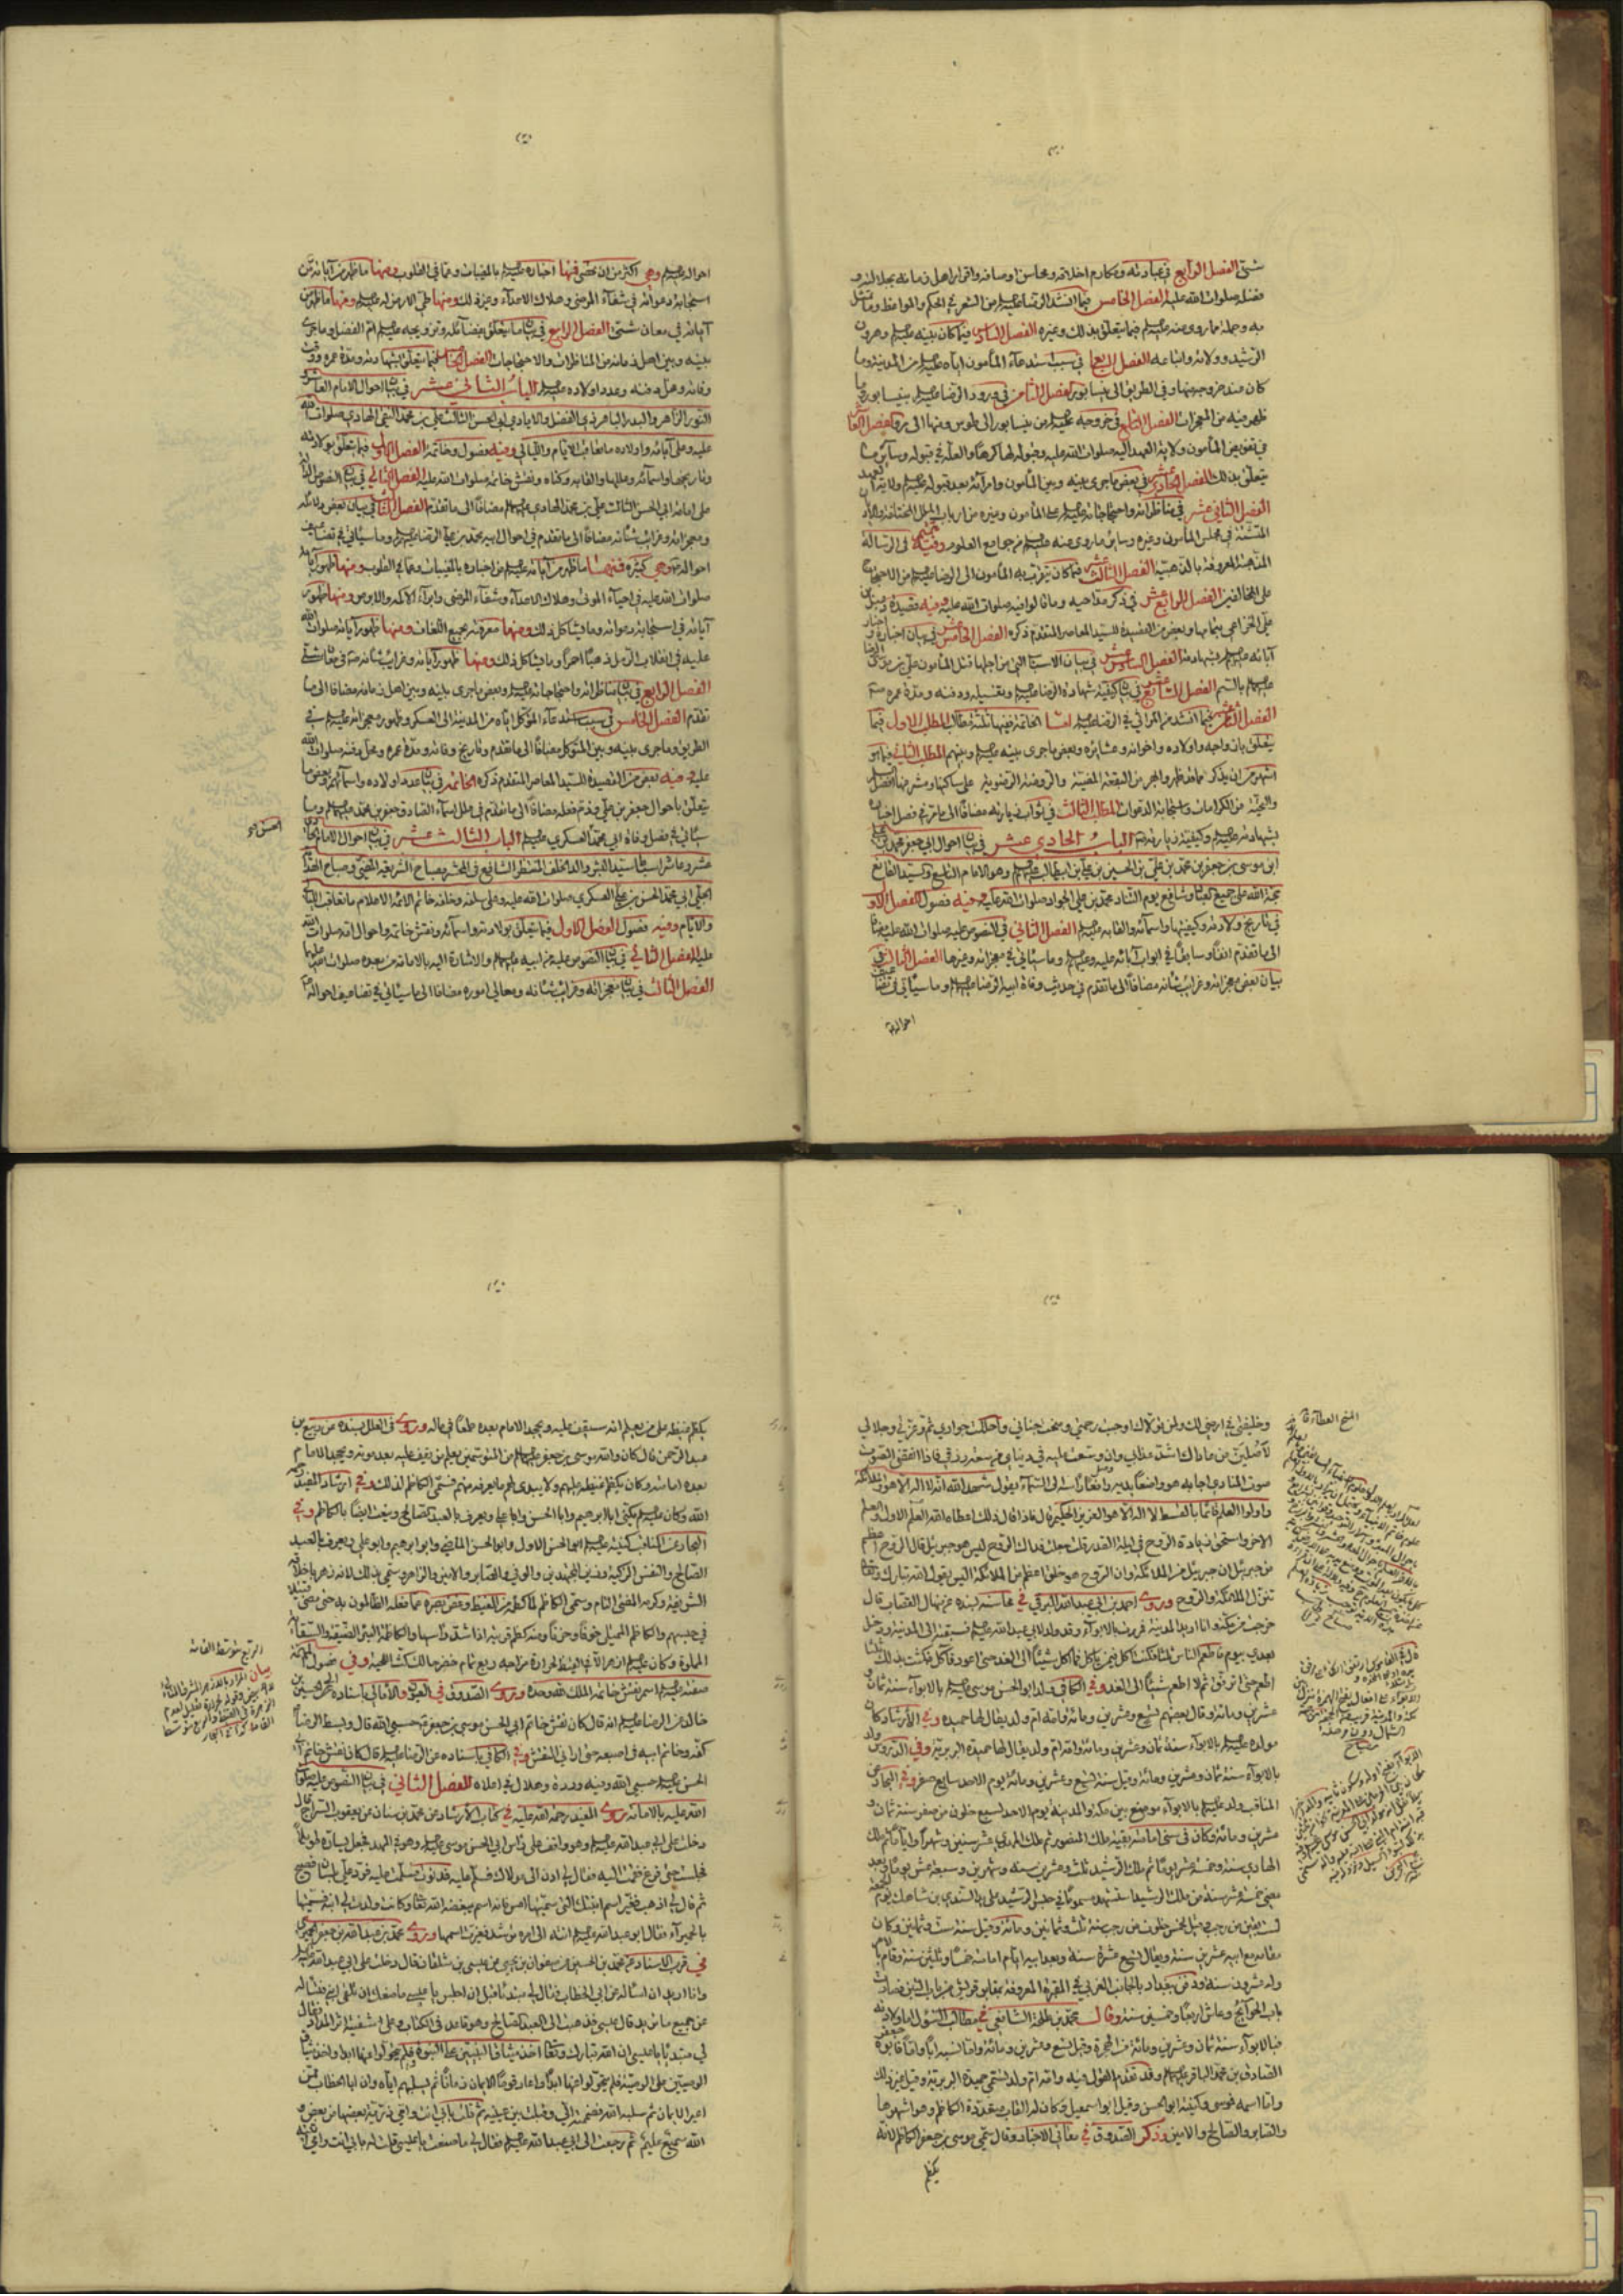 شتى الفصل الرابع في عبادته ومكارم اخلاقه ومحاسن اوصافه واقرار اهل زمانه بجلالته و
فضله صلوات الله عليه الفصل الخامس فيما انشد الرضا عليه السلم من الشعر في الحكم والمواعظ وما تمثل
به وجملة مما روى عنه عليه السلم فيما يتعلق بذلك وغيره الفصل السادس فيما كان بينه عليه السلم وهرون
الرشيد وولاته واتباعه الفصل السابع في سبب استدعاء المأمون اياه عليه السلم من المدينة وما
كان عند خروجه منها وفي الطريق الى نيسابور الفصل الثامن في ورود الرضا عليه السلم بنيسابور وما
ظهر فيه من المعجزات الفصل التاسع في خروجه عليه السلم من نيسابور الى طوس ومنها الى مرو الفصل العاشر
في تفويض المأمون ولاية العهد اليه صلوات الله عليه وقبوله لها كرها والعلة في قبوله وساير ما
يتعلق بذلك الفصل الحادي عشر في بعض ما جرى بينه وبين المأمون وامرآئه بعد قبوله عليه السلم ولاية العهد
الفصل الثاني عشر في مناظراته واحتجاجاته عليه السلم على المأمون وغيره من ارباب الملل المختلفة والآراء
المتشتتة في مجلس المأمون وغيره وساير ما روى عنه عليه السلم من جوامع العلوم وفيه تتميم في الرسالة
المذهبة المعروفة بالذهبية الفصل الثالث عشر فيما كان يتقرب به المأمون الى الرضا عليه السلم من الاحتجاج
على المخالفين الفصل الرابع عشر في ذكر مداحيه وما قالوا فيه صلوات الله عليه وفيه قصيدة دعبل بن
علي الخزاعي بتمامها وبعض من القصيدة للسيد المعاصر المتقدم ذكره الفصل الخامس عشر في بيان اخباره واخبار
آبائه عليهم السلم بشهادته الفصل السادس عشر في بيان الاسباب التي من اجلها قتل المأمون علي بن موسى الرضا
عليهما السلم بالسم الفصل السابع عشر في بيان كيفية شهادة الرضا عليه السلم وتغسيله ودفنه ومدة عمره
الفصل الثامن عشر فيما انشد من المراثي في الرضا عليه السلم اما الخاتمة ففيها ثلثة مطالب المطلب الاول فيما
يتعلق بازواجه واولاده واخوانه وعشائره وبعض ما جرى بينه عليه السلم وبينهم المطلب الثاني فيما هو
اشهر من ان يذكر مما قد ظهر والبحر من البقعة المضيئة والروضة الرضوية على ساكنها ومشرفها افضل السلم
والتحية من الكرامات واستجابة الدعوات المطلب الثالث في ثواب زيارته مضافا الى ما مر في فصل اخباره
بشهادته عليه السلم وكيفية زيارته الباب الحادي عشر في بيان احوال ابي جعفر محمد بن علي
ابن موسى بن جعفر بن محمد بن علي بن الحسين بن علي بن ابيطالب عليهم السلم وهو الامام التاسع والسيد القانع
حجة الله على جميع العباد وشافع يوم التناد محمد بن علي الجواد صلوات الله عليه وفيه فصول الفصل الاول
في تاريخ ولادته وكيفيتها واسمآئه والقابه عليه السلم الفصل الثاني في النصوص عليه صلوات الله عليه مضافا
الى ما تقدم انفا وسابقا في ابواب آبائه عليه وعليهم السلم وما سيأتي في معجزاته وغيرها الفصل الثالث في
بيان بعض معجزاته وغرائب شأنه مضافا الى ما تقدم في حديث وفاة ابيه الرضا عليه السلم وما سيأتي في تضاعيف
احواله
احواله عليه السلم وهي اكثر من ان تحصى فمنها اخباره عليه السلم بالمغيبات وعما في القلوب ومنها ما ظهر من آياته من
استجابة دعواته في شفآء المرضى وهلاك الاعدآء وغير ذلك ومنها طي الارض له عليه السلم ومنها ما ظهر من
آياته في معان شتى الفصل الرابع في بيان ما يتعلق بفضآئله وتزويجه عليه السلم ام الفضل وما جرى
بينه وبين اهل زمانه من المناظرات والاحتجاجات الفصل الخامس فيما يتعلق بشهادته ومدة عمره ووقت
وفاته ومحل دفنه وعدد اولاده عليه السلم الباب الثاني عشر في بيان احوال الامام العاشر
النور الزاهر والبدر الباهر ذي الفضل والايادي ابي الحسن الثالث علي بن محمد النقي الهادي صلوات الله
عليه وعلى آبائه واولاده ما تعاقب الايام والليالي وفيه فصول وخاتمة الفصل الاول فيما يتعلق بولادته
وتاريخها واسمآئه وعللها والقابه وكناه ونقش خاتمه صلوات الله عليه الفصل الثاني في بيان النصوص الدالة
على امامة ابي الحسن الثالث علي بن محمد الهادي عليهم السلم مضافا الى ما تقدم الفصل الثالث في بيان بعض دلائله
ومعجزاته وغرائب شأنه مضافا الى ما تقدم في احوال ابيه محمد بن علي الرضا عليهم السلم وما سيأتي في تضاعيف
احواله وهي كثيرة فمنها ما ظهر من آياته عليه السلم من اخباره بالمغيبات وعما في القلوب ومنها ظهور آياته
صلوات الله عليه في احيآء الموتى وهلاك الاعدآء وشفآء المرضى وابرآء الاكمه والابرص ومنها ظهور
آياته في استجابة دعواته وما يشاكل ذلك ومنها معرفته بجميع اللغات ومنها ظهور آياته صلوات الله
عليه في انقلاب الرمل ذهبا احمرا وما يشاكل ذلك ومنها ظهور آياته وغرائب شأنه في معان شتى
الفصل الرابع في بيان مناظراته واحتجاجاته عليه السلم وبعض ما جرى بينه وبين اهل زمانه مضافا الى ما
تقدم الفصل الخامس في سبب استدعآء المتوكل اياه من المدينة الى العسكر وظهور معجزاته عليه السلم في
الطريق وما جرى بينه وبين المتوكل مضافا الى ما تقدم وتاريخ وفاته ومدة عمره ومحل دفنه صلوات الله
عليه وفيه بعض من القصيدة للسيد المعاصر المتقدم ذكره الخاتمة في بيان عدد اولاده واسمآئهم وبعض ما
يتعلق باحوال جعفر بن علي وقد مر فصله مضافا الى ما تقدم في علل اسمآء الصادق جعفر بن محمد عليهما السلم وما
سيأتي في فصل وفاة ابي محمد العسكري عليه السلم الباب الثالث عشر في بيان احوال الامام الحادي
عشر
والايام وفيه فصول الفصل الاول فيما يتعلق بولادته واسمآئه ونقش خاتمه واحوال امه صلوات الله
عليها الفصل الثاني في بيان النصوص عليه من ابيه عليهما السلم والاشارة اليه بالامامة من بعده صلوات الله عليهما
الفصل الثالث في بيان معجزاته وغرائب شأنه ومعالي اموره مضافا الى ما سيأتي في تضاعيف احواله
وخليفتي في ارضي لك ولمن تولاك اوجبت رحمتي ومنحت جناني واحللت جواري ثم وعزتي وجلالي
لأصلين من عاداك اشد عذابي وان وسعت عليه في دنياي من سعة رزقي فاذا انقضى الصوت
صوت المنادي اجابه هو واضعا يديه رافعا رأسه الى السمآء يقول شهد الله انه لا اله الا هو والملائكة
واولوا العلم قائما بالقسط لا اله الا هو العزيز الحكيم قال فاذا قال ذلك اعطاه الله العلم الاول والعلم
الآخر واستحق زيادة الروح في ليلة القدر قلت جعلت فداك الروح ليس هو جبرئيل قال الروح اعظم
من جبرئيل ان جبرئيل من الملائكة وان الروح هو خلق اعظم من الملائكة اليس يقول الله تبارك وتعالى
تنزل الملائكة والروح وروى احمد بن ابي عبد الله البرقي في محاسنه بسنده عن منهال القصاب قال
خرجت من مكة وانا اريد المدينة فمررت بالابوآء وقد ولد لابي عبد الله عليه السلم فسبقته الى المدينة ودخل
بعدي بيوم فاطعم الناس ثلثا فكنت آكل فيمن يأكل فما آكل شيئا الى الغد حتى اعود فآكل فمكثت بذلك ثلثا
اطعم حتى ارتفق ثم لا اطعم شيئا الى الغد وفي الكافي ولد ابو الحسن موسى عليه السلم بالابوآء سنة ثمان و
عشرين ومائة وقال بعضهم تسع وعشرين ومائة وامه ام ولد يقال لها حميدة وفي الارشاد كان
مولده عليه السلم بالابوآء سنة ثمان وعشرين ومائة وامه ام ولد يقال لها حميدة البربرية وفي الدروس ولد
بالابوآء سنة ثمان وعشرين ومائة وقيل سنة تسع وعشرين ومائة يوم الاحد سابع صفر وفي البحار عن
المناقب ولد عليه السلم بالابوآء موضع بين مكة والمدينة يوم الاحد لسبع خلون من صفر سنة ثمان و
عشرين ومائة وكان في سني امامته بقية ملك المنصور ثم ملك المهدي عشر سنين وشهرا واياما ثم ملك
الهادي سنة وخمسة عشر يوما ثم ملك الرشيد ثلث وعشرين سنة وشهرين وسبعة عشر يوما وبعد
مضي خمس عشر سنة من ملك الرشيد استشهد مسموما في حبس الرشيد على يد السندي بن شاهك يوم الجمعة
لست بقين من رجب وقيل لخمس خلون من رجب سنة ثلث وثمانين ومائة وقيل سنة ست وثمانين وكان
مقامه مع ابيه عشرين سنة ويقال تسع عشرة سنة وبعد ابيه ايام امامته خمسا وثلثين سنة وقام بالامر
وله عشرون سنة ودفن ببغداد بالجانب الغربي في المقبرة المعروفة بمقابر قريش من باب التين فصارت
باب الحوآئج وعاش اربعا وخمسين سنة وقال محمد بن طلحة الشافعي في مطالب السئول اما ولادته
فبالابوآء سنة ثمان وعشرين ومائة من الهجرة وقيل تسع وعشرين ومائة واما نسبه ابا واما فابوه جعفر
الصادق بن محمد الباقر عليهما السلم وقد تقدم القول فيه وامه ام ولد تسمى حميدة البربرية وقيل غير ذلك
واما اسمه فموسى وكنيته ابو الحسن وقيل ابو اسمعيل وكان له القاب متعددة الكاظم وهو اشهرها
والصابر والصالح والامين وذكر الصدوق في معاني الاخبار وقال سمي موسى بن جعفر الكاظم لانه
يكظم
يكظم غيظه على من يعلم انه سيقف عليه ويجحد الامام بعده طمعا في ماله وروى في العلل بسنده عن ربيع بن
عبد الرحمن قال كان والله موسى بن جعفر عليهما السلم من المتوسمين يعلم من يقف عليه بعد موته ويجحد الامام
بعده امامته وكان يكظم غيظه عليهم ولا يبدي لهم ما يعرفه منهم فسمي الكاظم لذلك وفي ارشاد المفيد رحمه
الله وكان عليه السلم يكنى ابا ابراهيم وابا الحسن وابا علي ويعرف بالعبد الصالح وينعت ايضا بالكاظم وفي
البحار عن المناقب كنيته عليه السلم ابو الحسن الاول وابو الحسن الماضي وابو ابرهيم وابو علي ويعرف بالعبد
الصالح والنفس الزكية وزين المجتهدين والوفي والصابر والامين والزاهر وسمي بذلك لانه زهر باخلاقه
الشريفة وكرمه المضئ التام وسمي الكاظم لما كظمه من الغيظ وغض بصره عما فعله الظالمون به حتى مضى قتيلا
في حبسهم والكاظم الممتلي خوفا وحزنا ومنه كظم قربته اذا شد رأسها والكاظمة البئر الضيقة والسقاية
المملوة وكان عليه السلم ازهر الا في القيظ لحرارة مزاجه ربع تمام خضر حالك كث اللحية وفي فصول المهمة
صفته عليه السلم اسمر نقش خاتمه الملك لله وحده وروى الصدوق في العيون والامالي باسناده الى الحسين بن
خالد عن الرضا عليه السلم انه قال كان نقش خاتم ابي الحسن موسى بن جعفر حسبي الله قال وبسط الرضا
كفه وخاتم ابيه في اصبعه حتى اراني النقش وفي الكافي باسناده عن الرضا عليه السلم قال كان نقش خاتم ابي
الحسن عليه السلم حسبي الله وفيه وردة وهلال في اعلاه الفصل الثاني في بيان النصوص عليه صلوات
الله عليه بالامامة روى المفيد رحمة الله عليه في كتاب الارشاد عن محمد بن سنان عن يعقوب السراج قال
دخلت على ابي عبد الله عليه السلم وهو واقف على رأس ابي الحسن موسى عليه السلم وهو في المهد فجعل يساره طويلا
فجلست حتى فرغ فقمت اليه فقال لي ادن الى مولاك فسلم عليه فدنوت فسلمت عليه فرد علي بلسان فصيح
ثم قال لي اذهب فغير اسم ابنتك التي سميتها امس فانه اسم يبغضه الله تعالى وكانت ولدت لي ابنة فسميتها
بالحميرآء فقال ابو عبد الله عليه السلم انته الى امره ترشد فغيرت اسمها وروى محمد بن عبد الله بن جعفر الحميري
في قرب الاسناد عن محمد بن الحسين عن صفوان بن يحيى عن عيسى بن شلقان قال دخلت على ابي عبد الله عليه السلم
وانا اريد ان اسئاله عن ابي الخطاب فقال لي مبتدئا قبل ان اجلس يا عيسى ما منعك ان تلقى ابني فتسئاله
عن جميع ما تريد قال عيسى فذهبت الى العبد الصالح وهو قاعد في الكتاب وعلى شفتيه اثر المداد فقال
لي مبتدئا يا عيسى ان الله تبارك وتعالى اخذ ميثاق النبيين على النبوة فلم يتحولوا عنها ابدا واخذ ميثاق
الوصيين على الوصية فلم يتحولوا عنها ابدا واعار قوما الايمان زمانا ثم يسلبهم اياه وان ابا الخطاب ممن
اعير الايمان ثم سلبه الله فضممته الي وقبلت بين عينيه ثم قلت بابي انت وامي ذرية بعضها من بعض و
الله سميع عليم ثم رجعت الى ابي عبد الله عليه السلم فقال لي ما صنعت يا عيسى قلت له بابي انت وامي اتيته